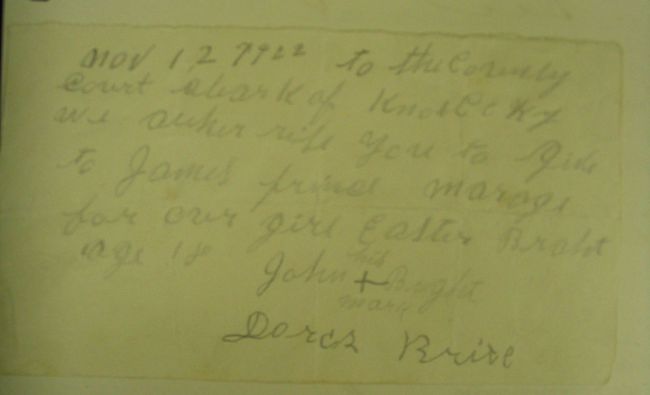 nov 12 1922 to the County
Court clark of Knox Co Ky
we auther rise you to give
to James prince marage
for our girl Easter Braht
age 18
his
John + Bright
mark
Dorcs Brite